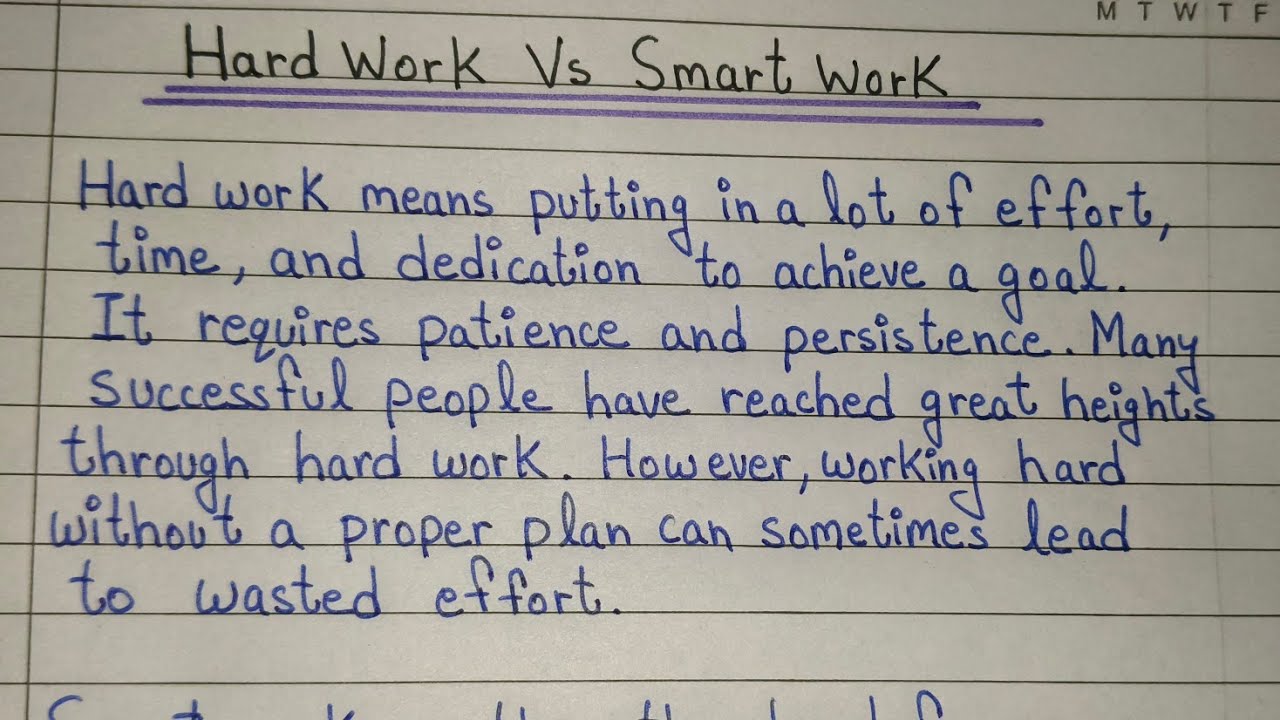 M T W T F
Hard Work Vs Smart Work
Hard work means putting in a lot of effort,
time, and dedication to achieve a goal.
It requires patience and persistence. Many
successful people have reached great heights
through hard work. However, working hard
without a proper plan can sometimes lead
to wasted effort.